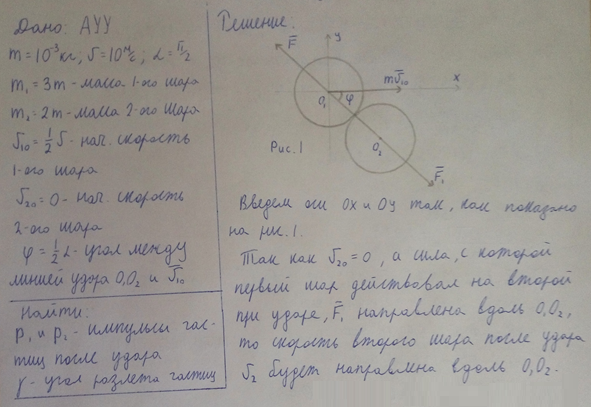 Дано: АУУ
m = 10⁻³ кг; υ = 10 м/с; α = π/2
m₁ = 3m - масса 1-ого шара
m₂ = 2m - масса 2-ого шара
υ₁₀ = 1/2 υ - нач. скорость
1-ого шара
υ₂₀ = 0 - нач. скорость
2-ого шара
φ = 1/2 α - угол между
линией удара O₁O₂ и υ̅₁₀
Найти:
p₁ и p₂ - импульсы час-
тиц после удара
γ - угол разлета частиц
Решение:
F̅
y
mυ̅₁₀
x
O₁
φ
O₂
Рис. 1
F̅₁
Введем оси OX и OY так, как показано
на рис. 1.
Так как υ₂₀ = 0, а сила, с которой
первый шар действовал на второй
при ударе, F̅₁ направлена вдоль O₁O₂,
то скорость второго шара после удара
υ̅₂ будет направлена вдоль O₁O₂.